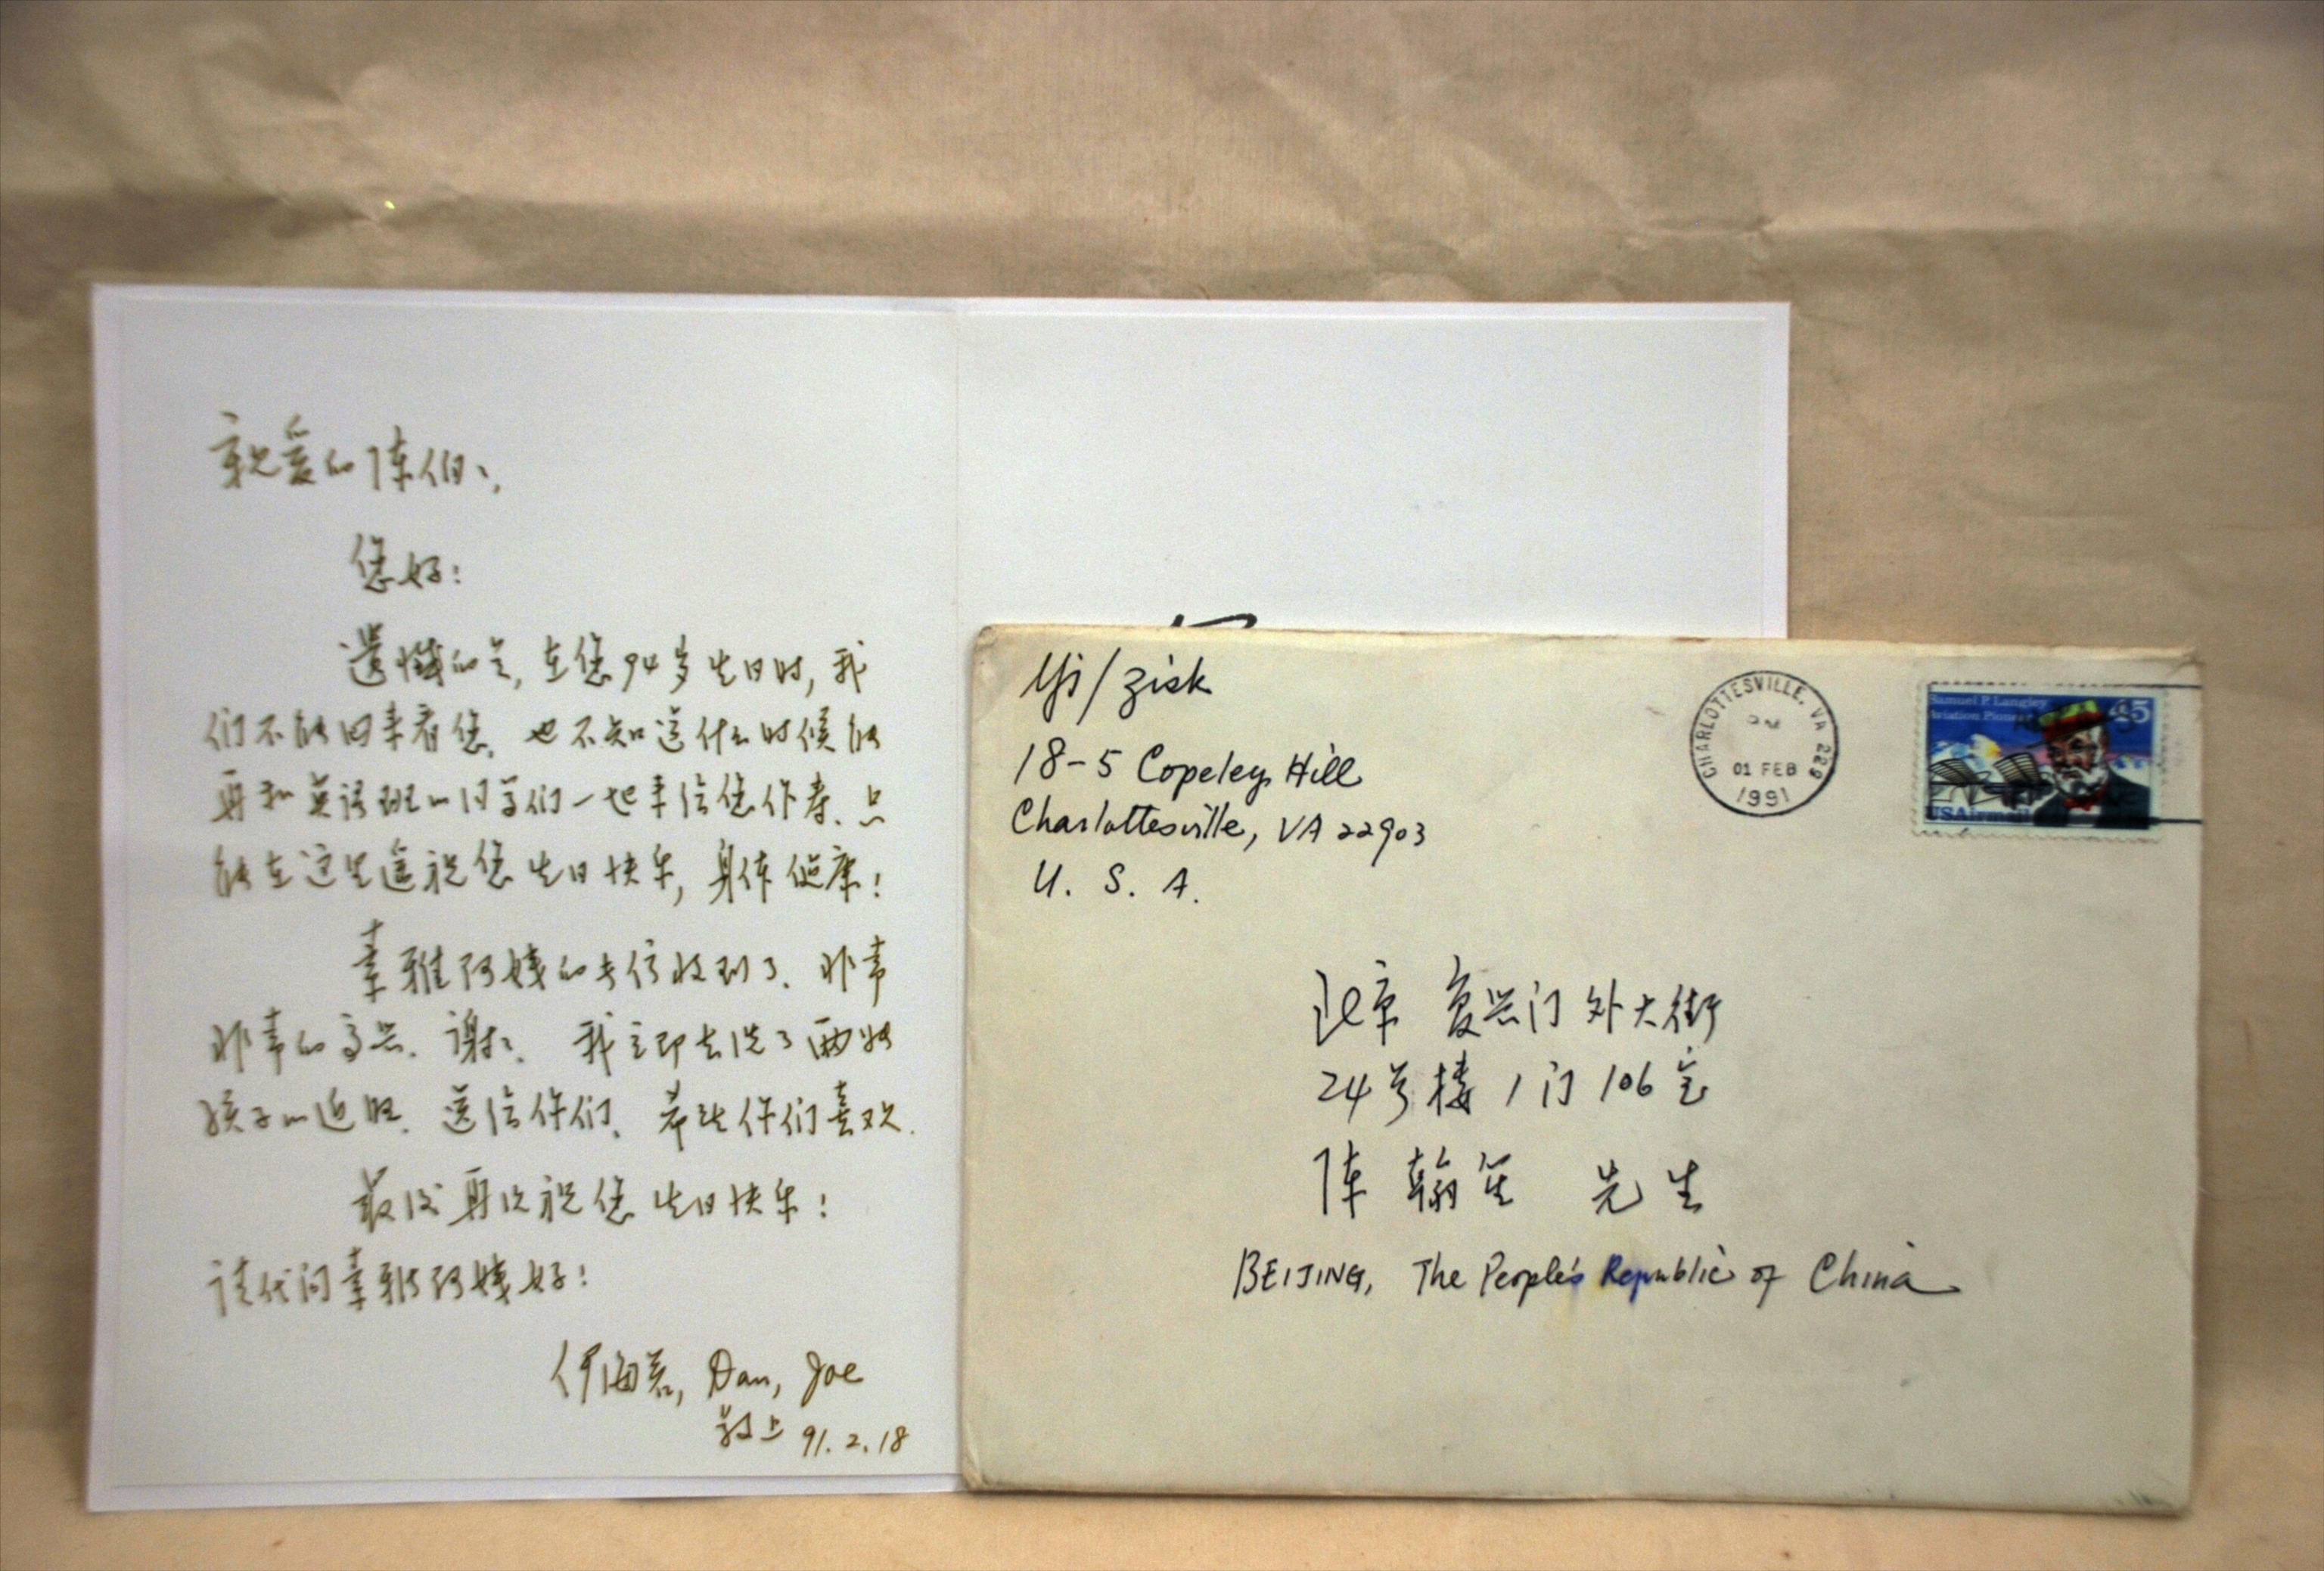 亲爱的陈伯伯,
您好:
遗憾的是,在您94岁生日时,我
们不能回来看您。也不知道什么时候能
再和英语班的同学们一起来给您作寿。只
能在这里遥祝您生日快乐,身体健康!
韦雅阿姨的来信收到了。非常
非常的高兴。谢谢。我立即去洗了两张
孩子的近照。送给你们。希望你们喜欢。
最后再次祝您生日快乐!
请代问韦雅阿姨好!
伊海若, Dan, Joe
敬上 91.2.18
Yi/Zisk
18-5 Copeley Hill
Charlottesville, VA 22903
U. S. A.
CHARLOTTESVILLE, VA 229
PM
01 FEB
1991
Samuel P. Langley
Aviation Pioneer
45
USAirmail
北京 复兴门外大街
24号楼1门106室
陈翰笙 先生
BEIJING, The People's Republic of China